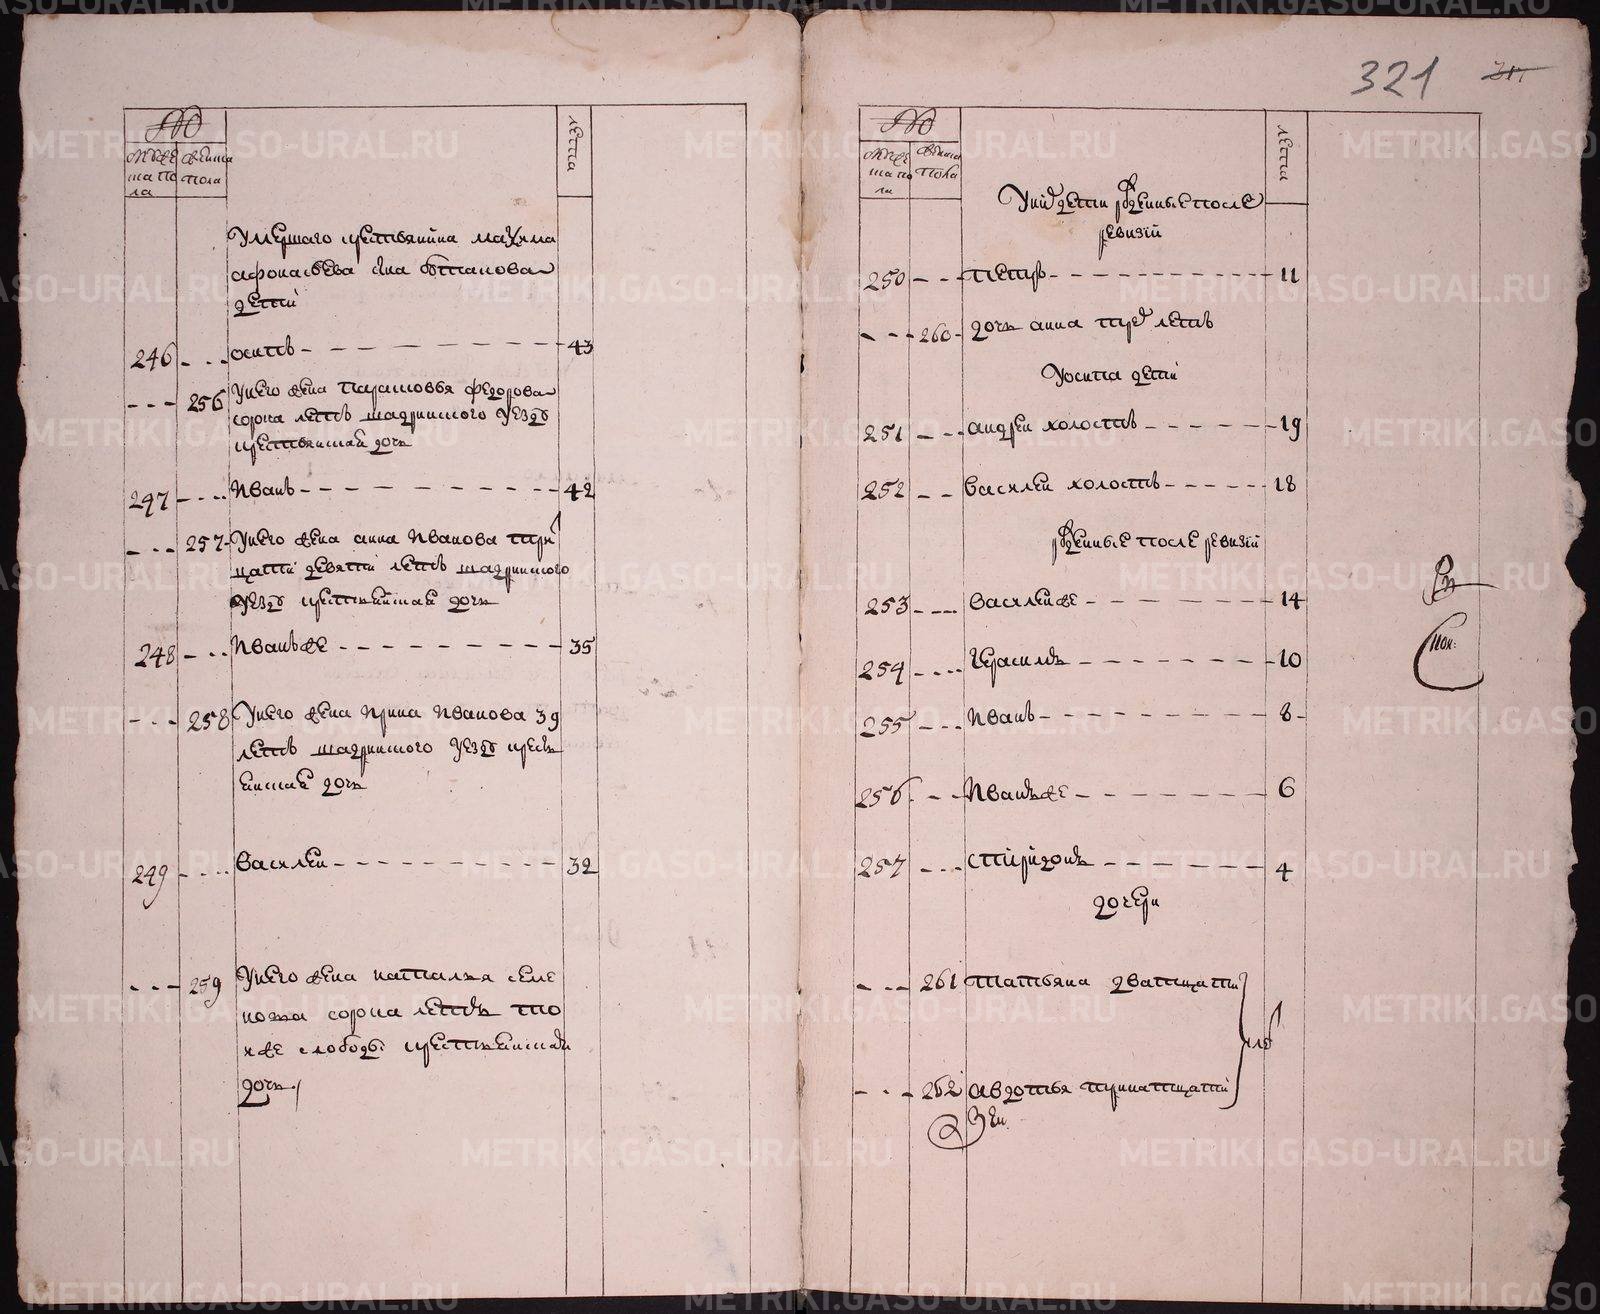 321
№
мꙋже
ска по
ла
женска
пола
лета
умершаго крестьянина маѯима
афонасьева сна ѡтанова
дети
246 - - - осипъ - - - - - - - - 43
- - - 256 У него жена парасковья федорова
сорока летъ шадринского уездꙋ
крестьянская дочь
247 - - - иванъ - - - - - - - - 42
- - - 257 - У него жена анна иванова трит
цати девяти летъ шадринского
уездꙋ крестьянская дочь
248 - - - иванъ же - - - - - - - 35
- - - 258 У него жена ирина иванова 39
летъ шадринского уездꙋ кресть
янская дочь
249 - - - василеи - - - - - - - 32
- - - 259 У него жена наталья семе
нова сорока летъ то
и же слободы крестьянская
дочь
№
мꙋже
ска по
ла
женска
пола
лета
У них дети рожденные после
ревизiи
250 - - - петръ - - - - - - - - 11
- - - 260 - дочь анна трех летъ
У осипа дети
251 - - - андреи холостъ - - - - - 19
252 - - василеи холостъ - - - - - 18
рожденные после ревизiи
253 - - - василеи же - - - - - - 14
254 - - - герасимъ - - - - - - - 10
255 - - - иванъ - - - - - - - 8 -
256 - - - иванъ же - - - - - - 6
257 - - - спиридонъ - - - - - - 4
дочери
- - - 261 татьяна дватцати
лѣ
- - - 262 авдотья тринатцати